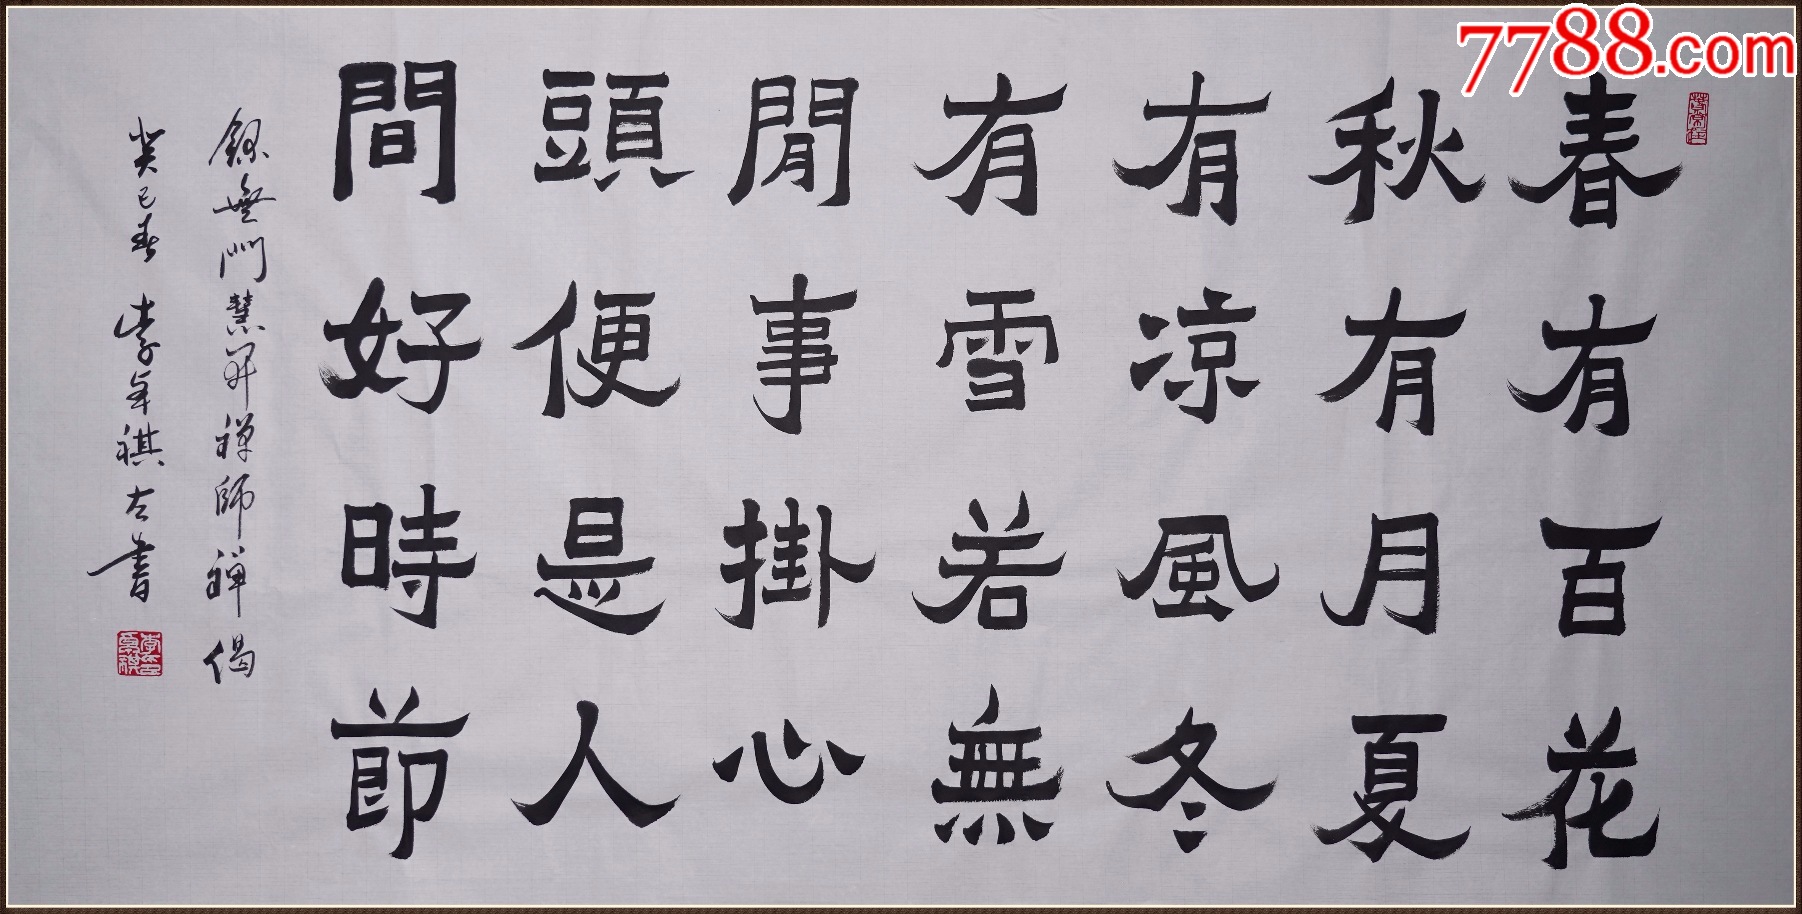 春有百花
秋有月夏
有涼風冬
有雪若無
閒事掛心
頭便是人
間好時節
錄無門慧開禪師禪偈
癸巳春 李年祺左書
7788.com